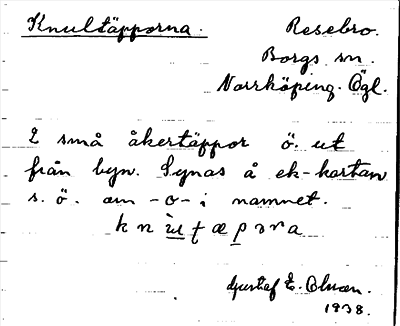 Knultäpporna.
Resebro.
Borgs sn.
Norrköping. Ögl.
2 små åkertäppor ö. ut
från byn. Synas å ek-kartan
s. ö. om -o- i namnet.
Gustaf E.
1938.